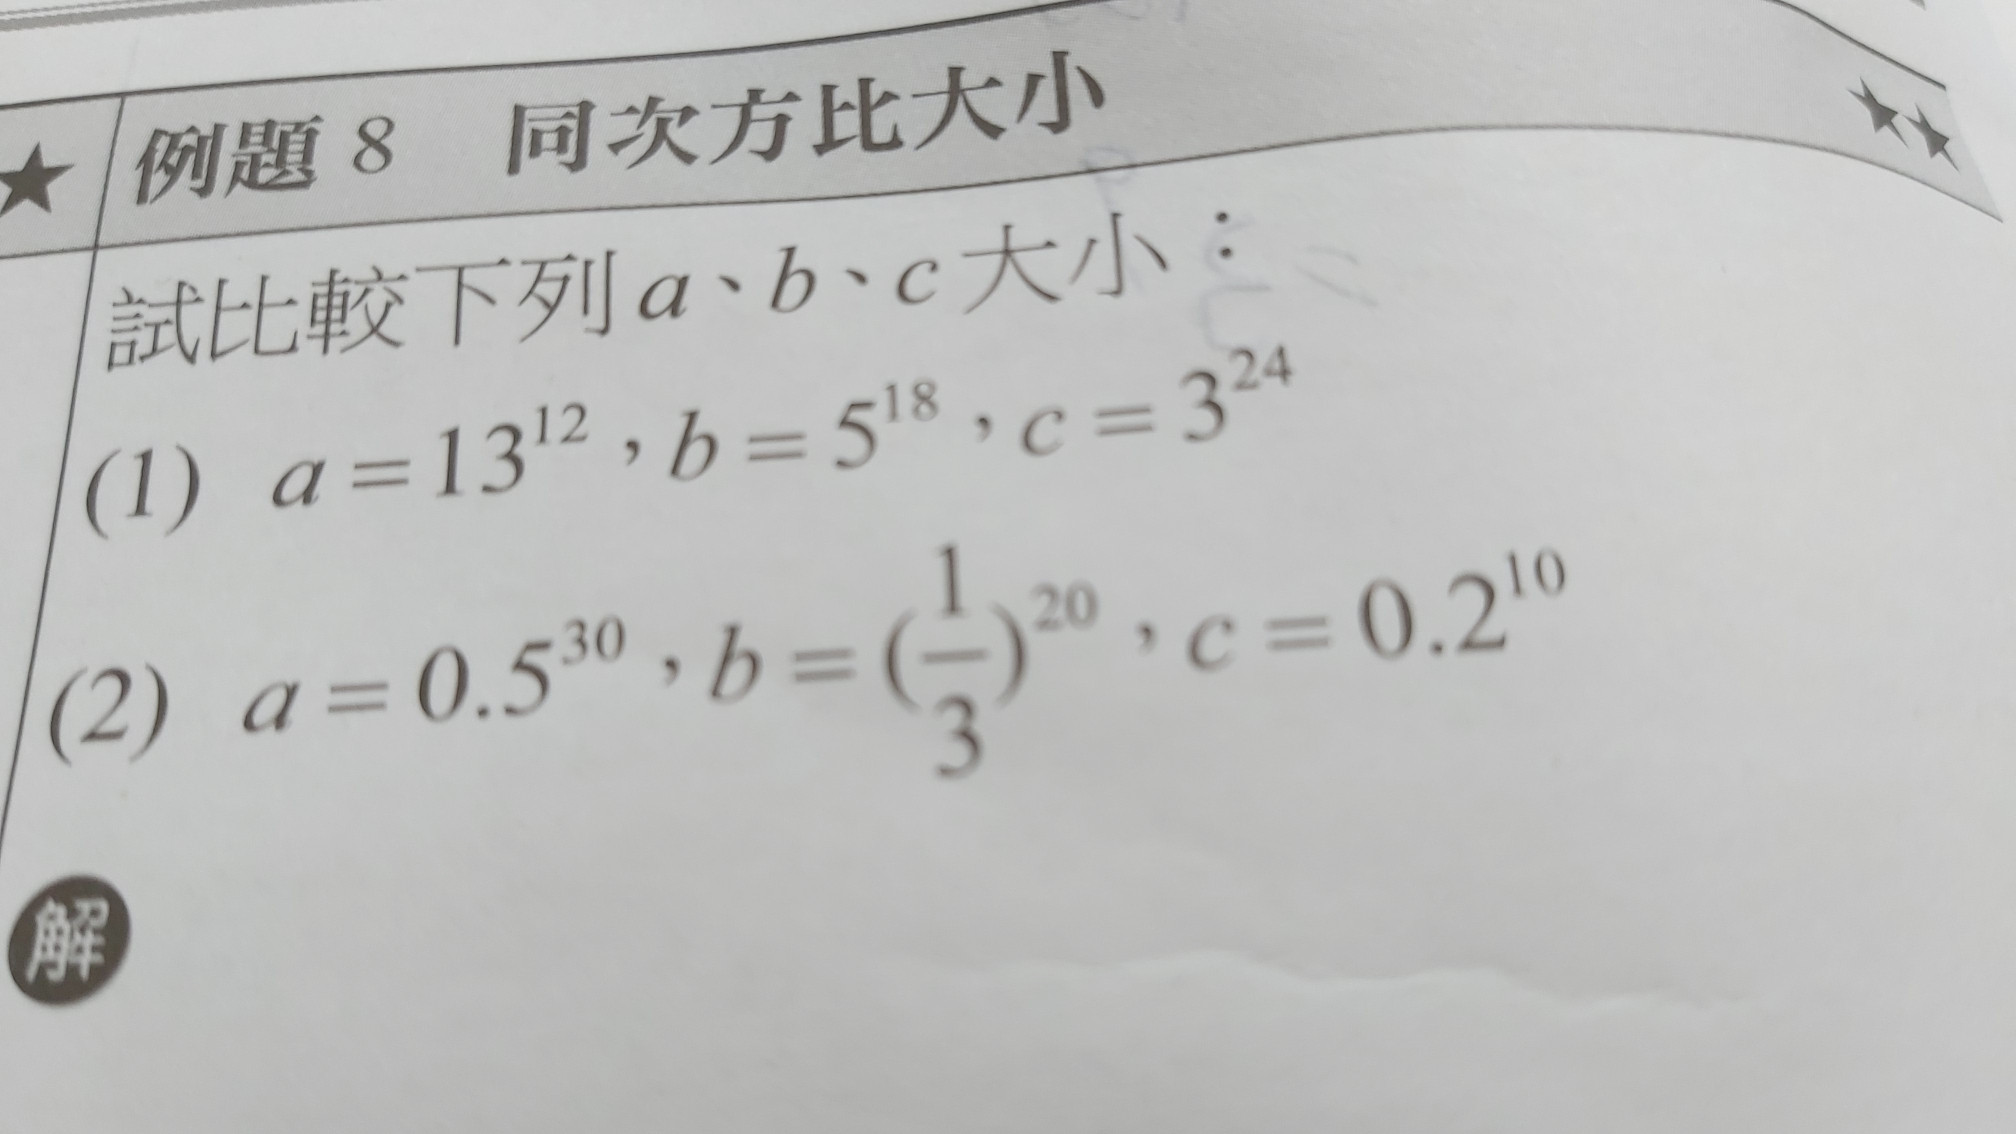 ★ 例題 8 同次方比大小 ★★
試比較下列 a、b、c 大小：
(1) a = 13¹²，b = 5¹⁸，c = 3²⁴
(2) a = 0.5³⁰，b = (1/3)²⁰，c = 0.2¹⁰
解